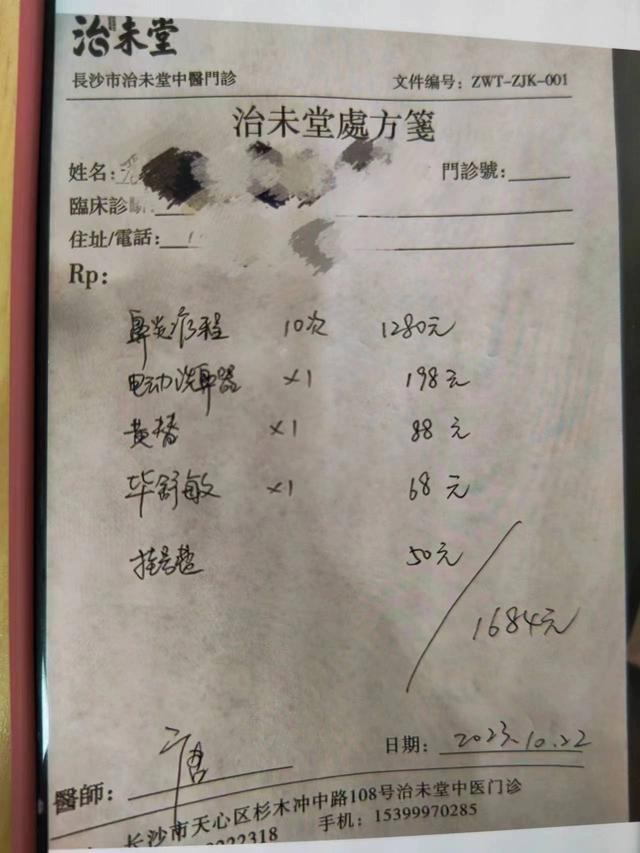 治未堂
長沙市治未堂中醫門診
文件编号：ZWT-ZJK-001
治未堂處方箋
姓名：
門診號：
臨床診
住址/電話：
Rp:
鼻炎疗程 10次 1280元
电动洗鼻器 x1 198元
黄替 x1 88元
毕舒敏 x1 68元
挂号费 50元
1684元
日期： 2023.10.22
醫師：
长沙市天心区杉木冲中路108号治未堂中医门诊
222318 手机：15399970285